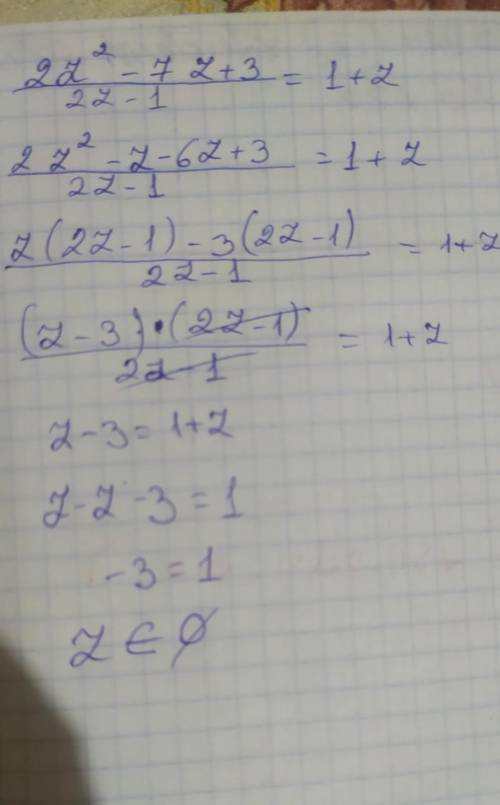 (2z² - 7z + 3)/(2z - 1) = 1 + z
(2z² - z - 6z + 3)/(2z - 1) = 1 + z
(z(2z - 1) - 3(2z - 1))/(2z - 1) = 1 + z
((z - 3) · (2z - 1))/(2z - 1) = 1 + z
z - 3 = 1 + z
z - z - 3 = 1
-3 = 1
z ∈ ∅